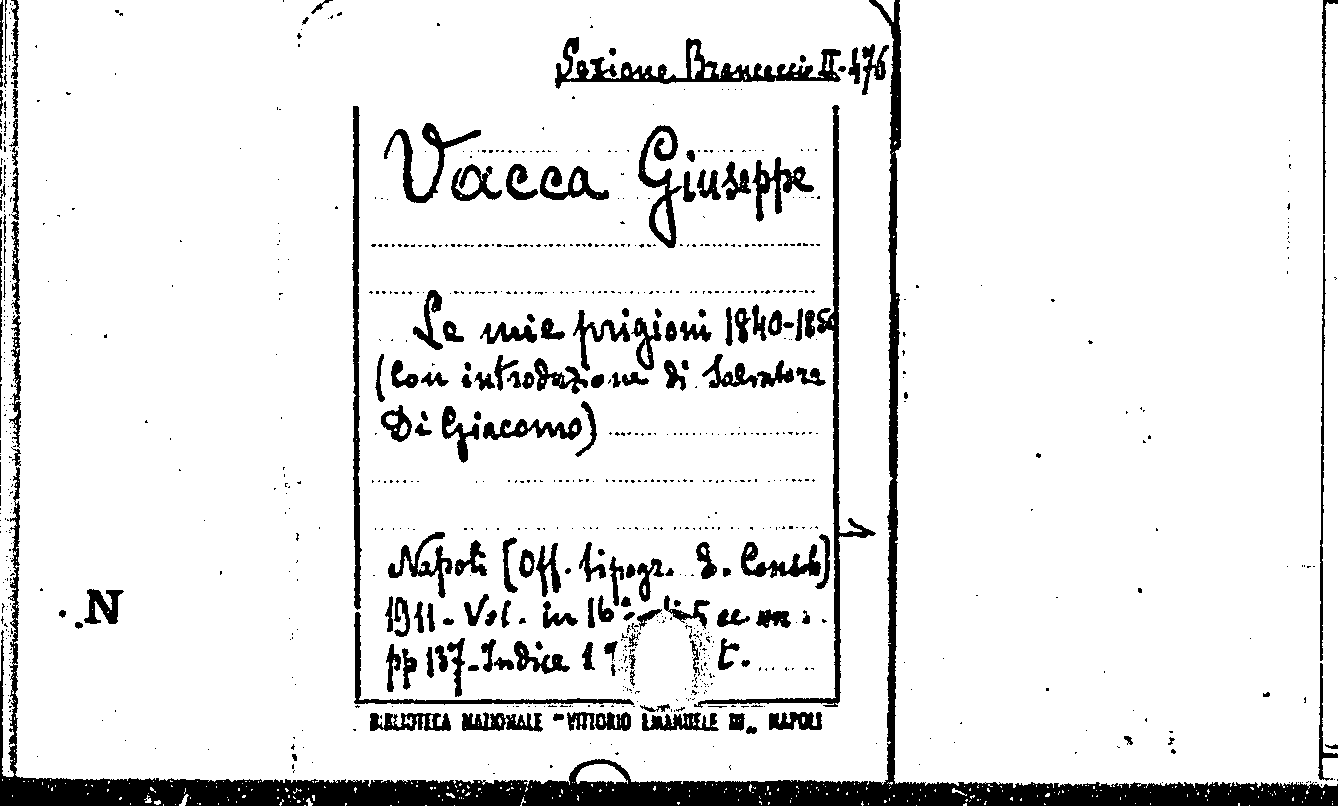 Sezione Brancaccio II-476
Vacca Giuseppe
Le mie prigioni 1840-1850
(Con introduzione di Salvatore
Di Giacomo)
Napoli [Off. tipogr.
1911 - Vol. in 16°
pp 137 - Indice 1
BIBLIOTECA NAZIONALE "VITTORIO EMANUELE III" NAPOLI
N